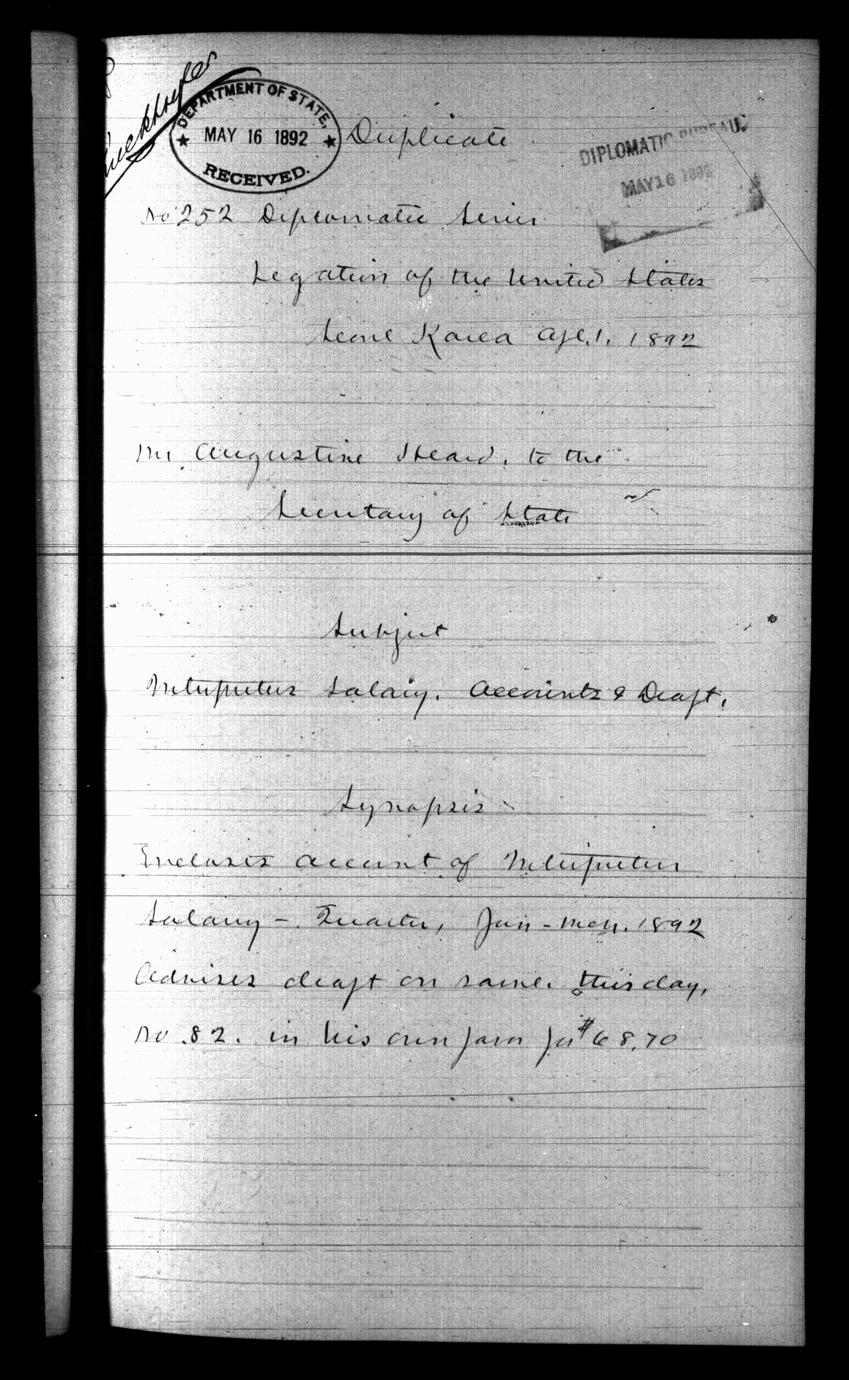 DEPARTMENT OF STATE.
MAY 16 1892
RECEIVED.
Duplicate
DIPLOMATIC BUREAU
MAY 16 1892
No 252 Diplomatic Series
Legation of the United States
Seoul Korea Apl. 1. 1892
Mr. Augustine Heard. to the
Secretary of State
Subject
Interpreters Salary. Accounts & Draft.
Synopsis
Incloses account of Interpreters
Salary - Quarter, Jan - Mch. 1892
Advises draft on same. this day,
No. 82. in his own favor for $68.70